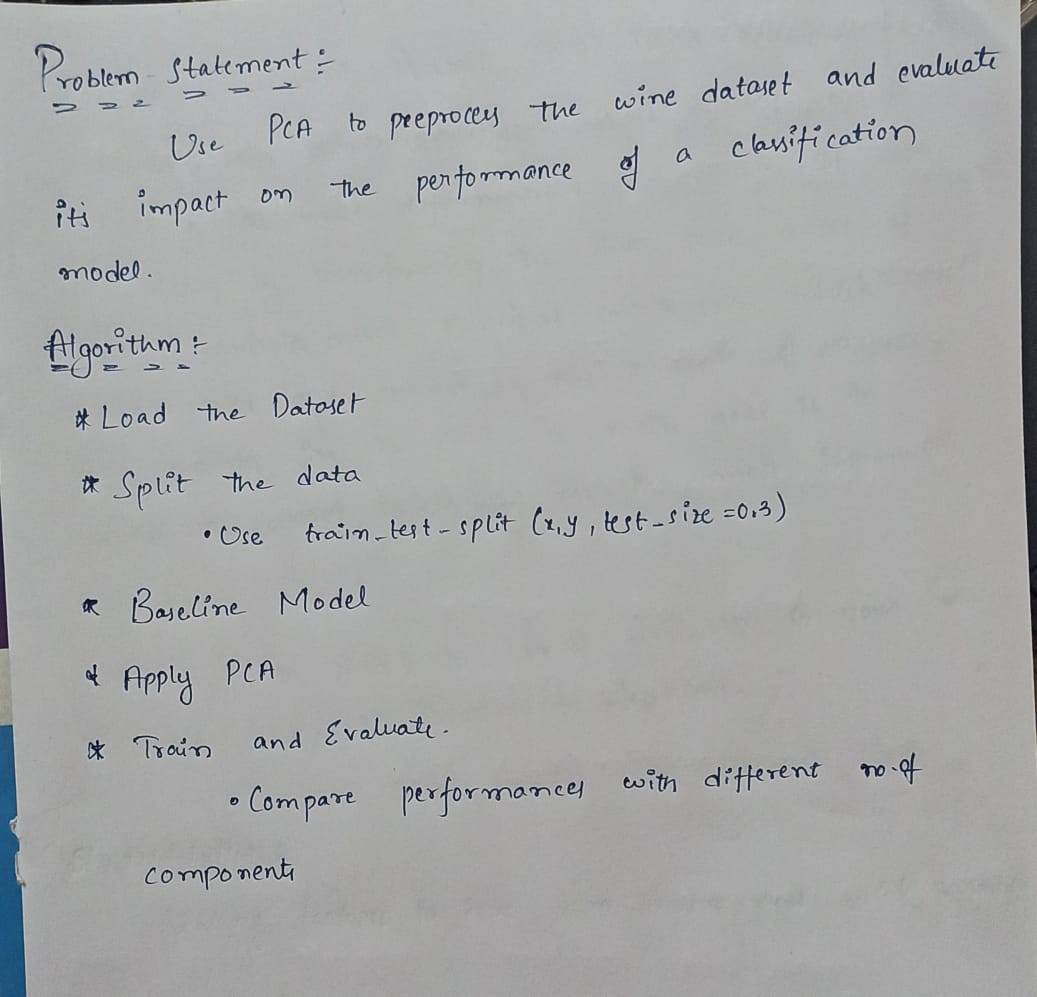 Problem Statement :-
Use PCA to preprocess the wine dataset and evaluate
it's impact on the performance of a classification
model.
Algorithm :-
* Load the Dataset
* Split the data
• Use train_test-split (x,y, test-size=0.3)
* Baseline Model
* Apply PCA
* Train and Evaluate.
• Compare performances with different no.of
components